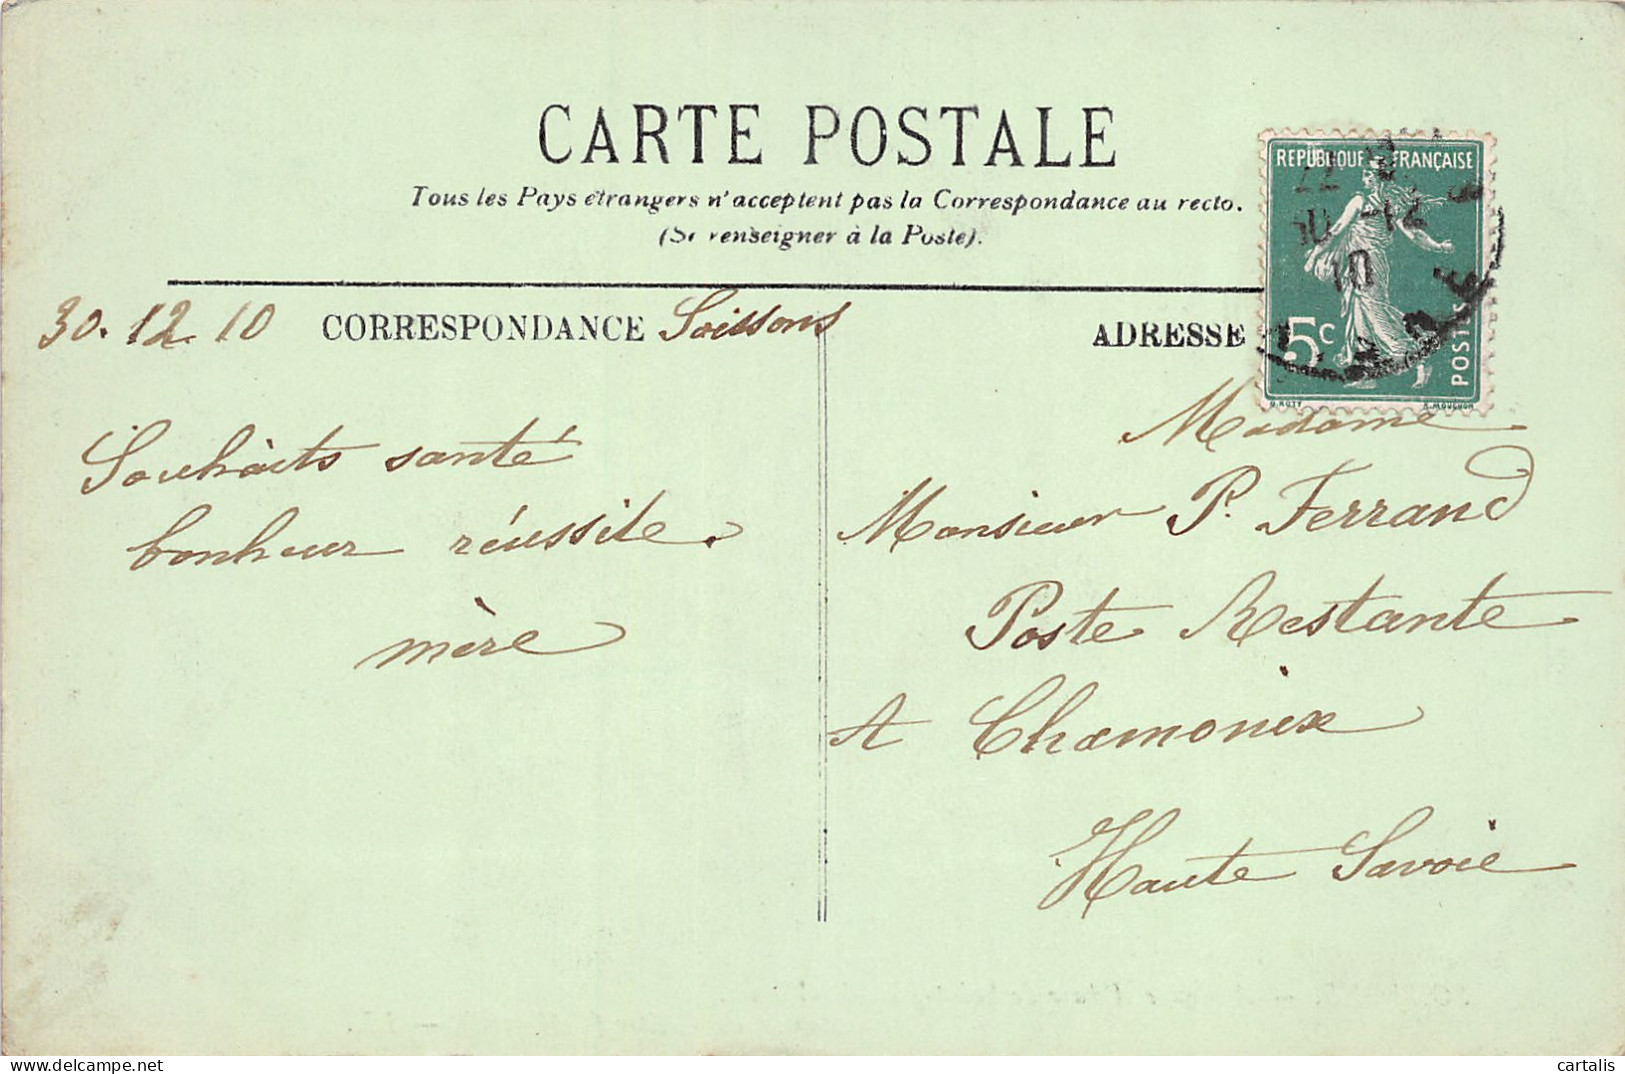 CARTE POSTALE
Tous les Pays étrangers n'acceptent pas la Correspondance au recto.
(Se renseigner à la Poste).
30.12.10 CORRESPONDANCE Soissons
ADRESSE
REPUBLIQUE FRANÇAISE
22
30 -12
10
5c
POSTES
O. ROTY
E. MOUCHON
Souhaits santé
bonheur réussite.
mère
Madame
Monsieur P. Ferrand
Poste Restante
A Chamonix
Haute Savoie
cartalis